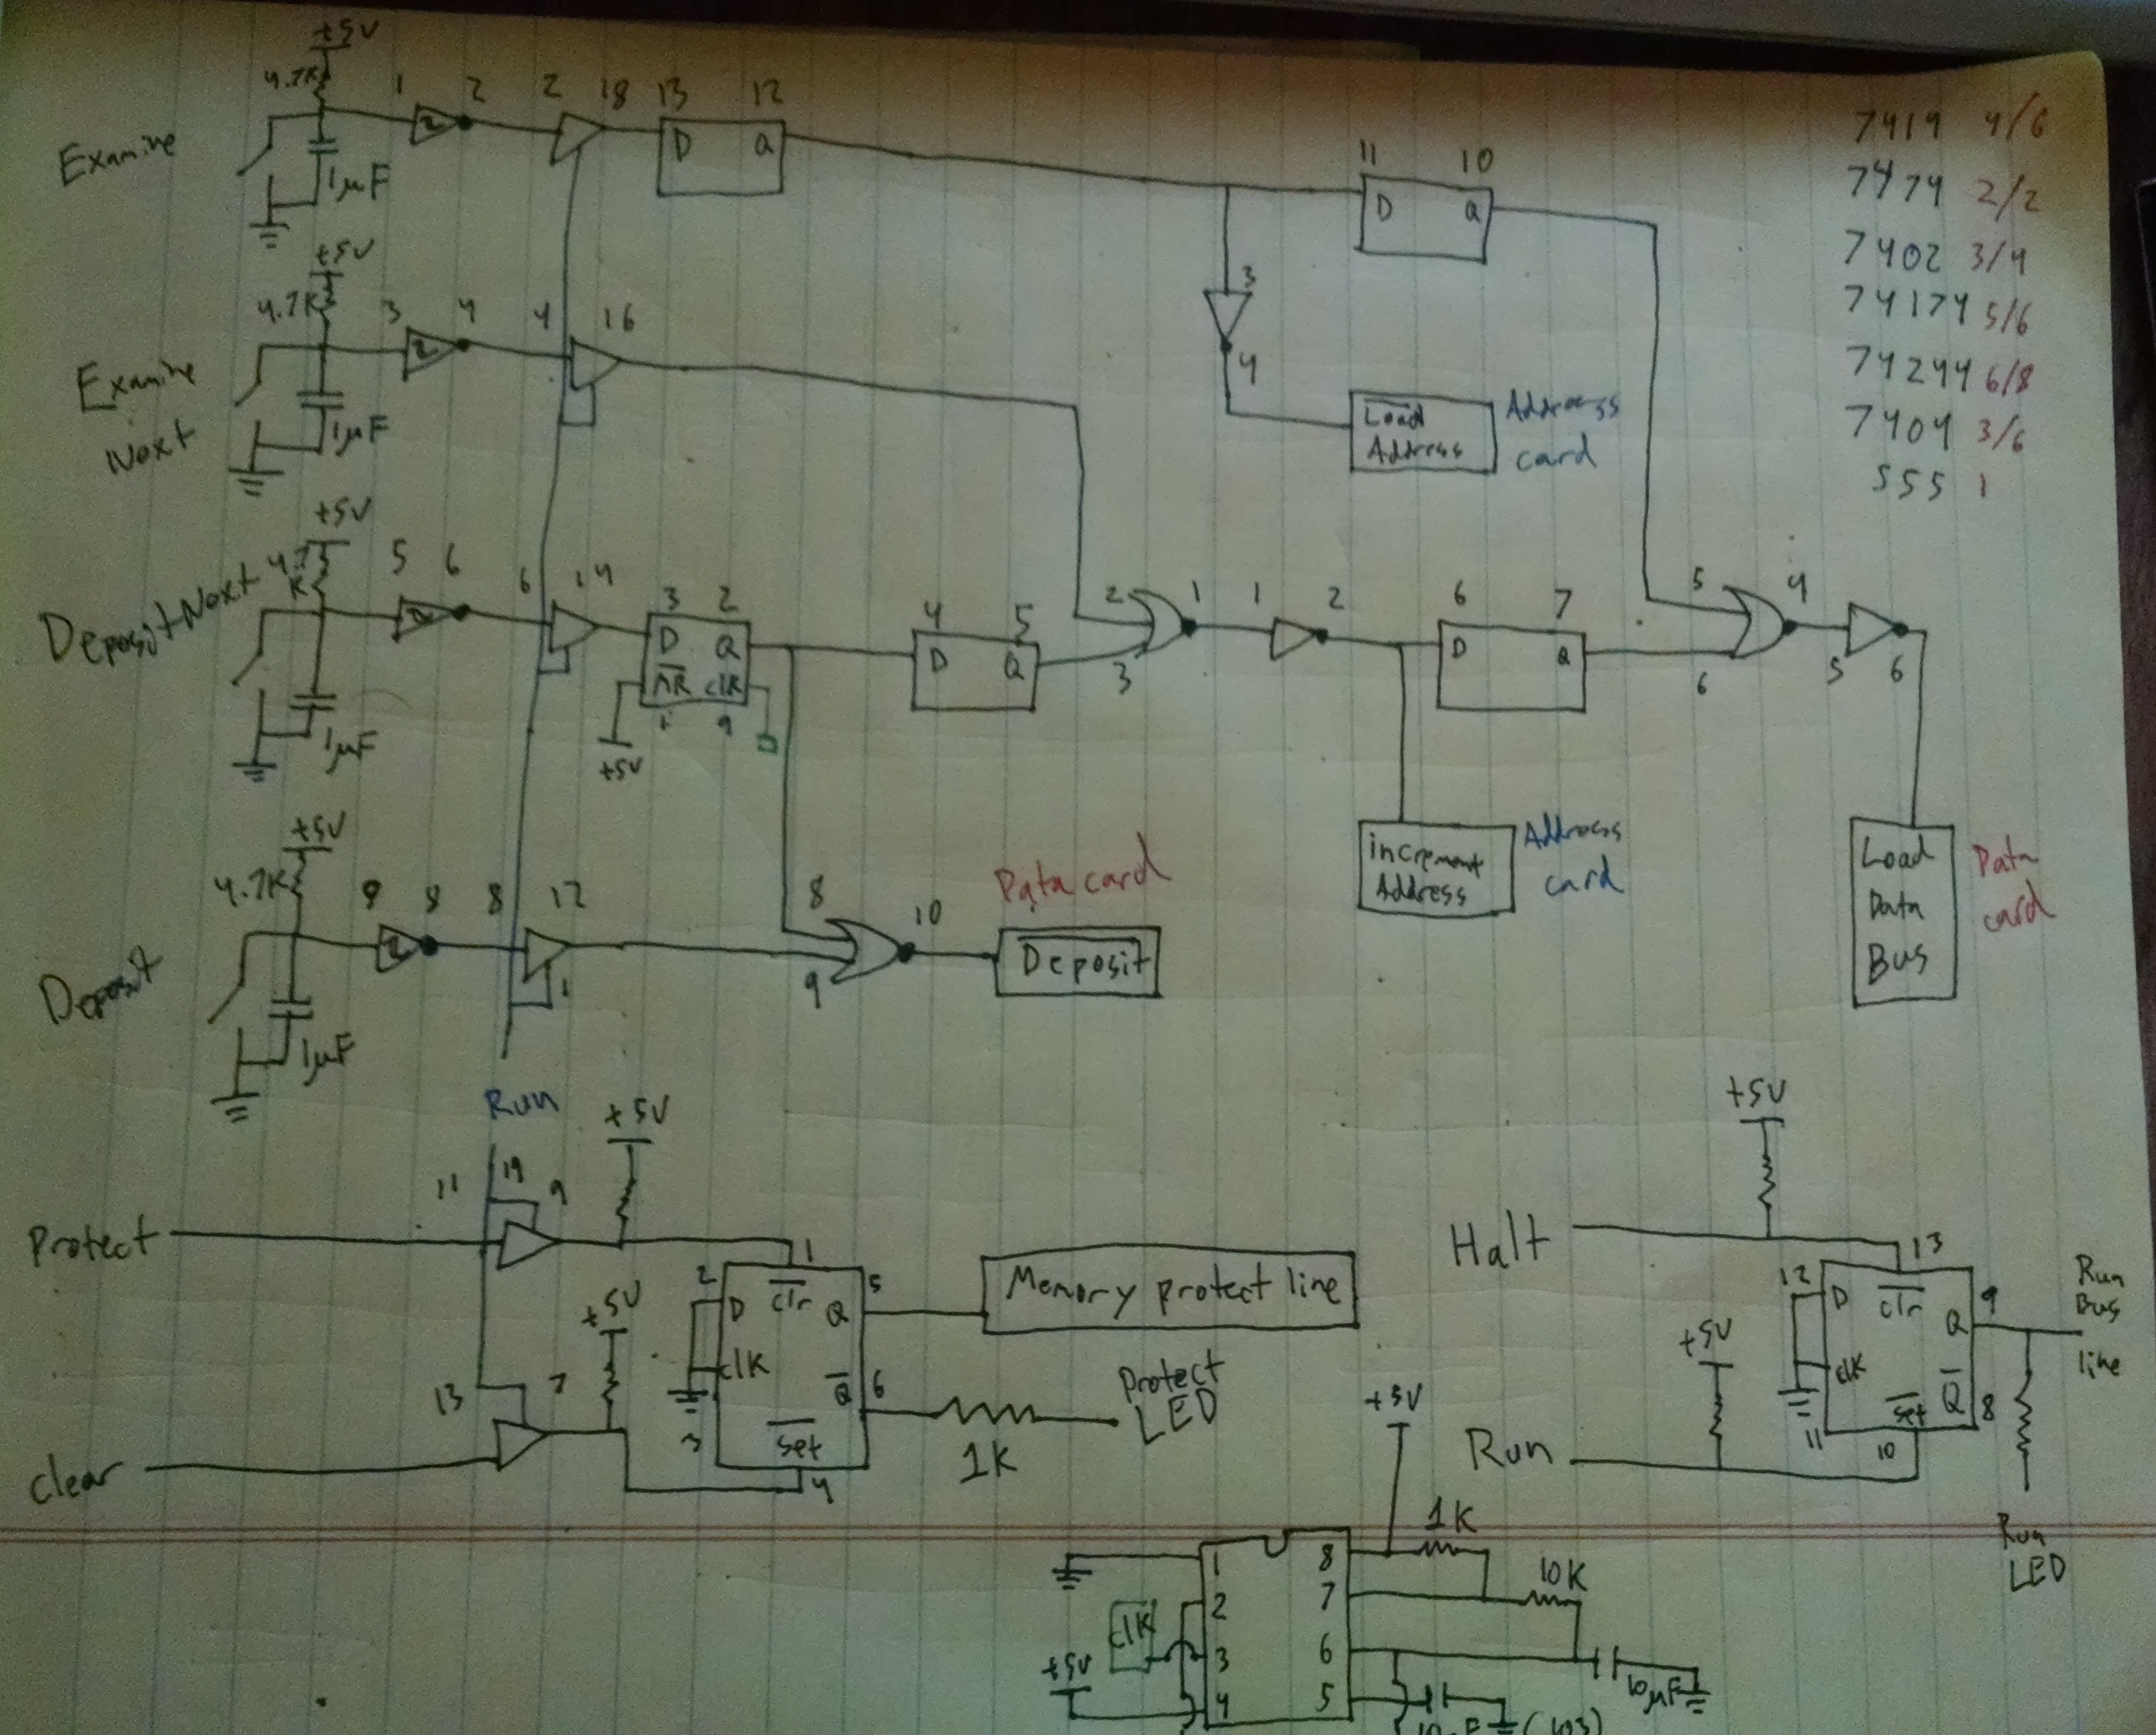 +5V
4.7K
1 2 2 18 13 12
Examine
D Q
1µF
11 10
D Q
7414 4/6
7474 2/2
7402 3/4
74174 5/6
74244 6/8
7404 3/6
555 1
+5V
4.7K
3 4 4 16
Examine
Next
1µF
3
4
Load
Address
Address
card
+5V
4.7
K
5 6 6 14 3 2
Deposit Next
D Q
MR clk
1 9
+5V
1µF
4 5
D Q
2 1 1 2
3
6 7
D Q
5 4
6 5 6
increment
Address
Address
card
Load
Data
Bus
Data
card
+5V
4.7K
9 8 8 12
1
Deposit
1µF
8 10
9
Data card
Deposit
Run
+5V
11 19 9
Protect
1
2 D clr Q 5
clk
Q 6
3 set
4
Memory protect line
1K
Protect
LED
+5V
13 7
clear
+5V
Halt
13
12 D clr Q 9
clk
Q 8
11 set
10
+5V
Run
Run
Bus
line
Run
LED
+5V
1K
10K
1 8
2 7
3 6
4 5
clk
+5V
10µF
(103)